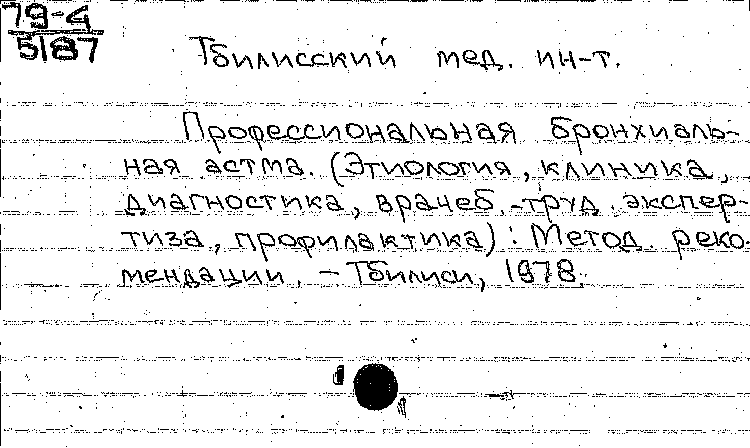 79-4
5187
Тбилисский мед. ин-т.
Профессиональная бронхиаль-
ная астма. (Этиология, клиника,
диагностика, врачеб.-труд. экспер-
тиза, профилактика): Метод. реко-
мендации. - Тбилиси, 1978.